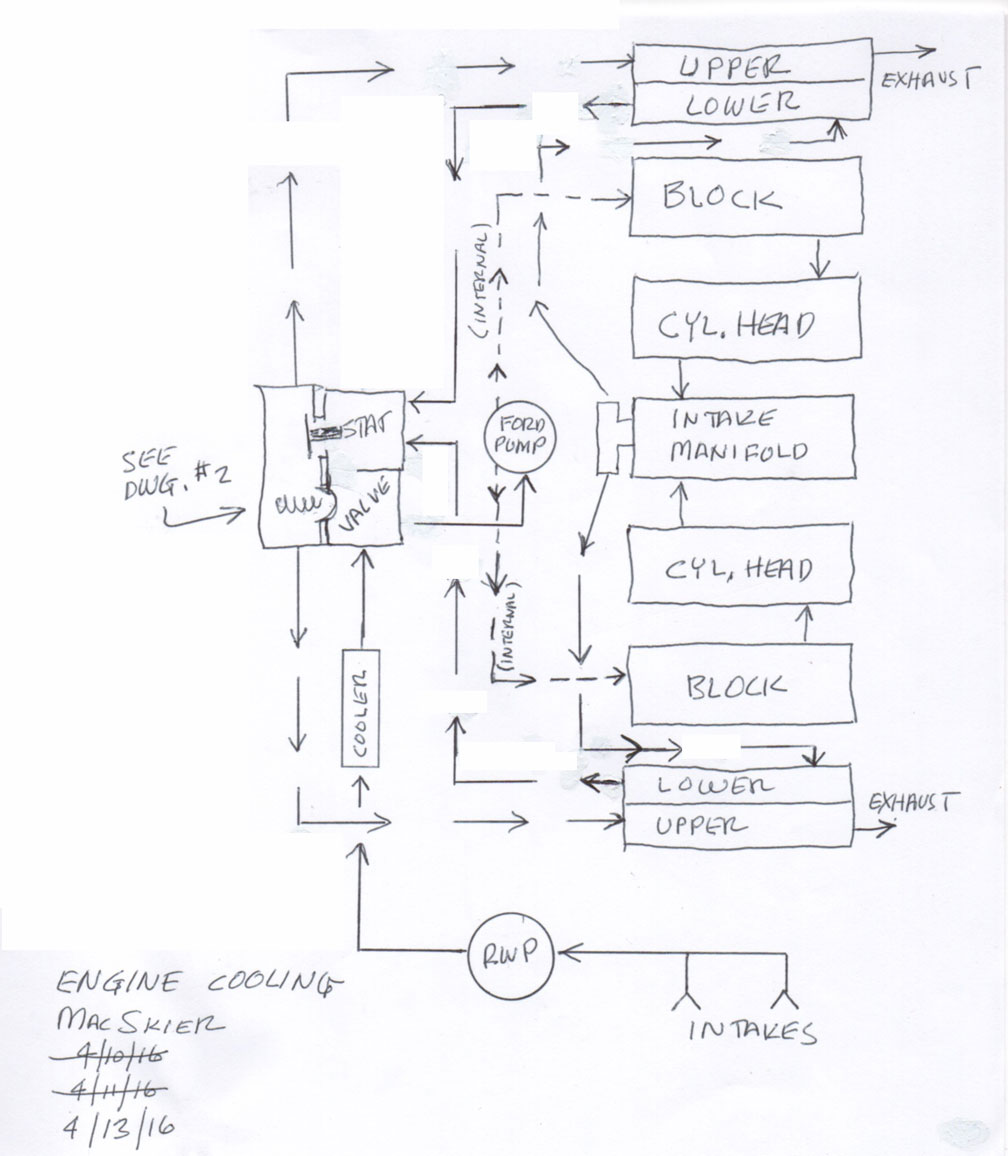 UPPER
EXHAUST
LOWER
BLOCK
(INTERNAL)
CYL. HEAD
STAT
FORD
PUMP
INTAKE
MANIFOLD
SEE
DWG. #2
VALVE
CYL. HEAD
(INTERNAL)
BLOCK
COOLER
LOWER
EXHAUST
UPPER
RWP
INTAKES
ENGINE COOLING
MACSKIER
4/10/16
4/11/16
4/13/16